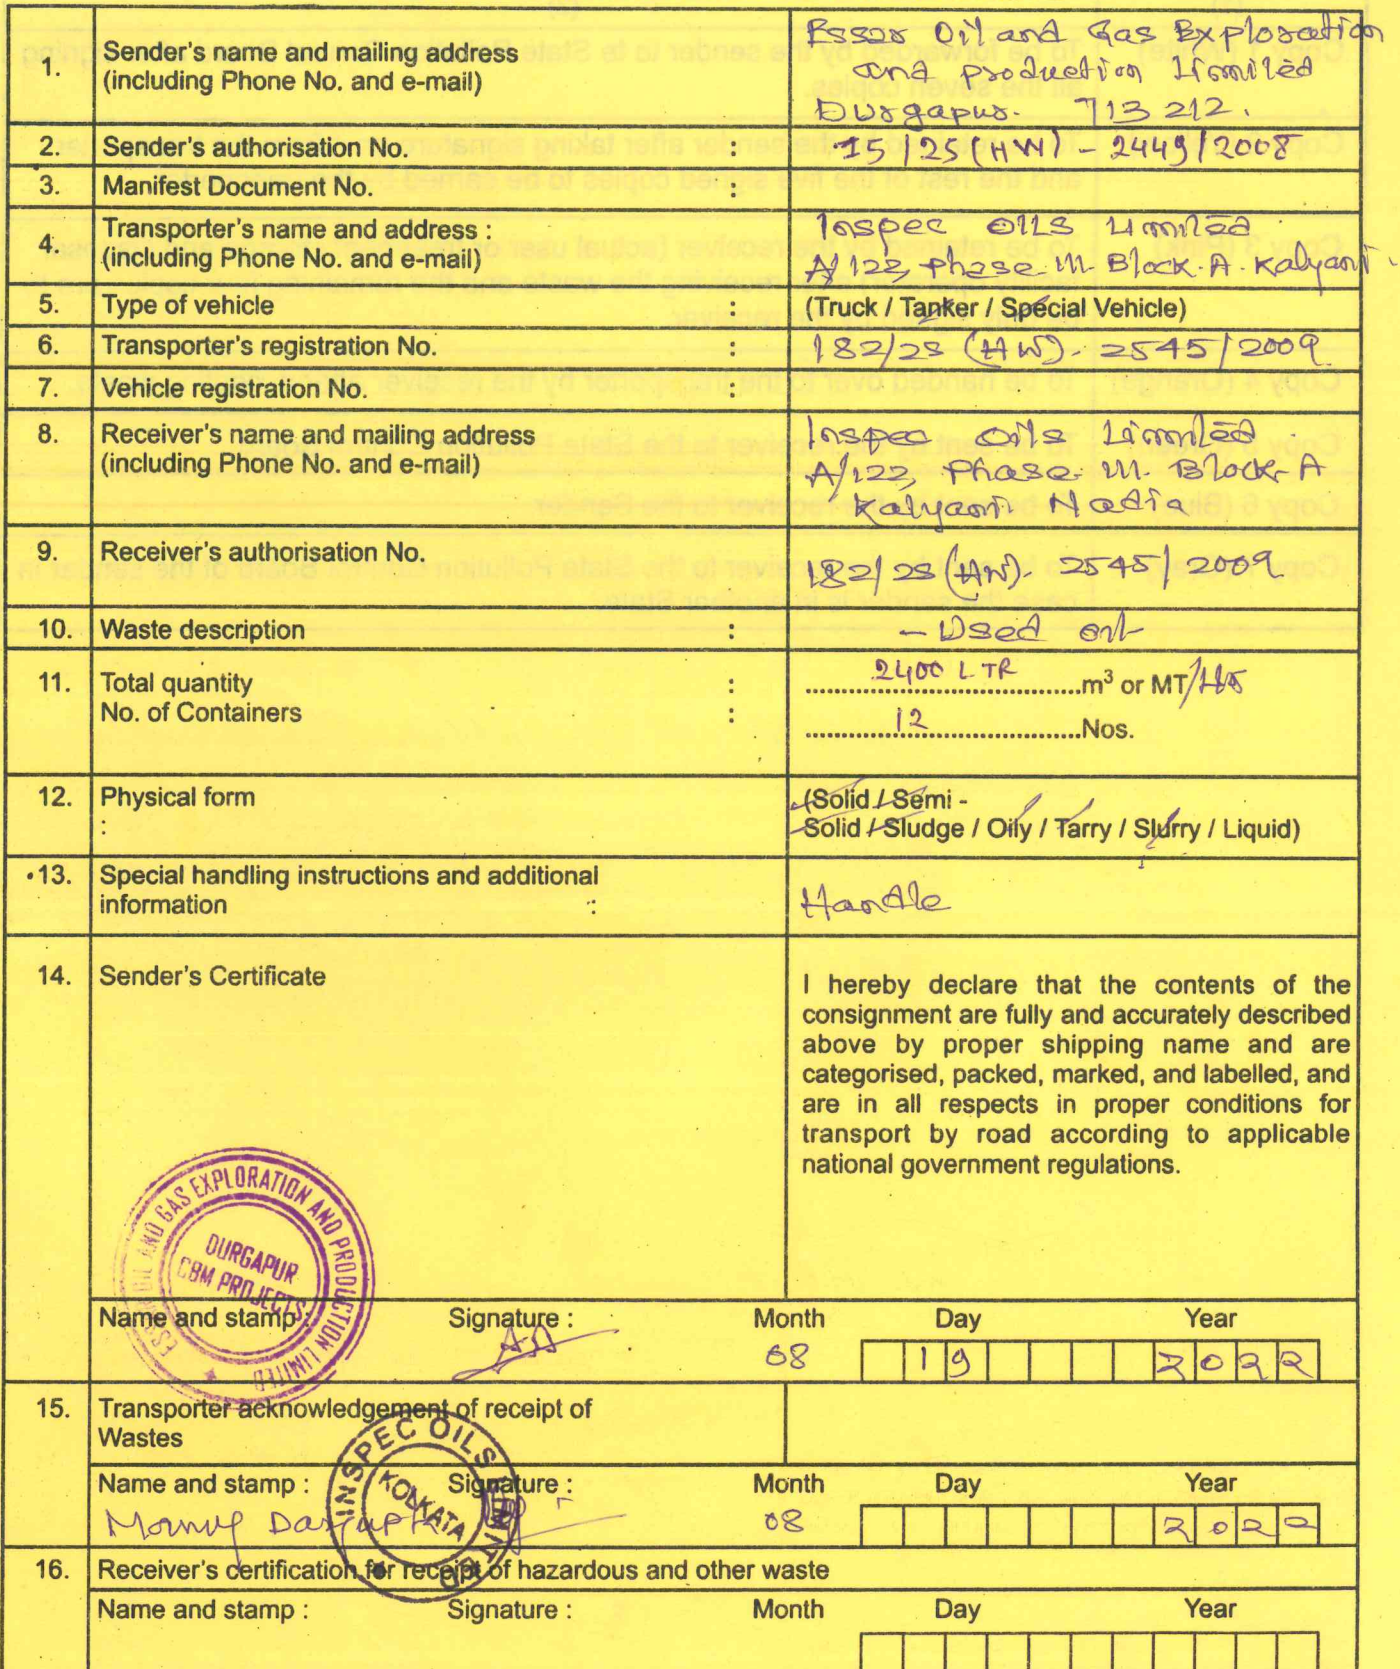 1. Sender's name and mailing address
(including Phone No. and e-mail)
Essar Oil and Gas Exploration
and production Limited
Durgapur. 713212.
2. Sender's authorisation No. : 15/2S(HW) - 2449/2008
3. Manifest Document No. :
4. Transporter's name and address :
(including Phone No. and e-mail)
Inspec Oils Limited
A/122, Phase-III. Block-A. Kalyani.
5. Type of vehicle : (Truck / Tanker / Special Vehicle)
6. Transporter's registration No. : 182/2S (HW). 2545/2009
7. Vehicle registration No. :
8. Receiver's name and mailing address
(including Phone No. and e-mail)
Inspec oils Limited
A/122, Phase-III. Block-A
Kalyani Nadia
9. Receiver's authorisation No.
182/2S (HW). 2545/2009.
10. Waste description : - Used oil
11. Total quantity : 2400 LTR m³ or MT/
No. of Containers : 12 Nos.
12. Physical form
:
(Solid / Semi -
Solid / Sludge / Oily / Tarry / Slurry / Liquid)
13. Special handling instructions and additional
information :
Handle
14. Sender's Certificate
I hereby declare that the contents of the
consignment are fully and accurately described
above by proper shipping name and are
categorised, packed, marked, and labelled, and
are in all respects in proper conditions for
transport by road according to applicable
national government regulations.
ESSAR OIL AND GAS EXPLORATION AND PRODUCTION LIMITED
DURGAPUR
CBM PROJECTS
Name and stamp : Signature : Month Day Year
08 19 2022
15. Transporter acknowledgement of receipt of
Wastes
INSPEC OILS LIMITED
KOLKATA
Name and stamp : Signature : Month Day Year
Dasgupta 08 2022
16. Receiver's certification for receipt of hazardous and other waste
Name and stamp : Signature : Month Day Year